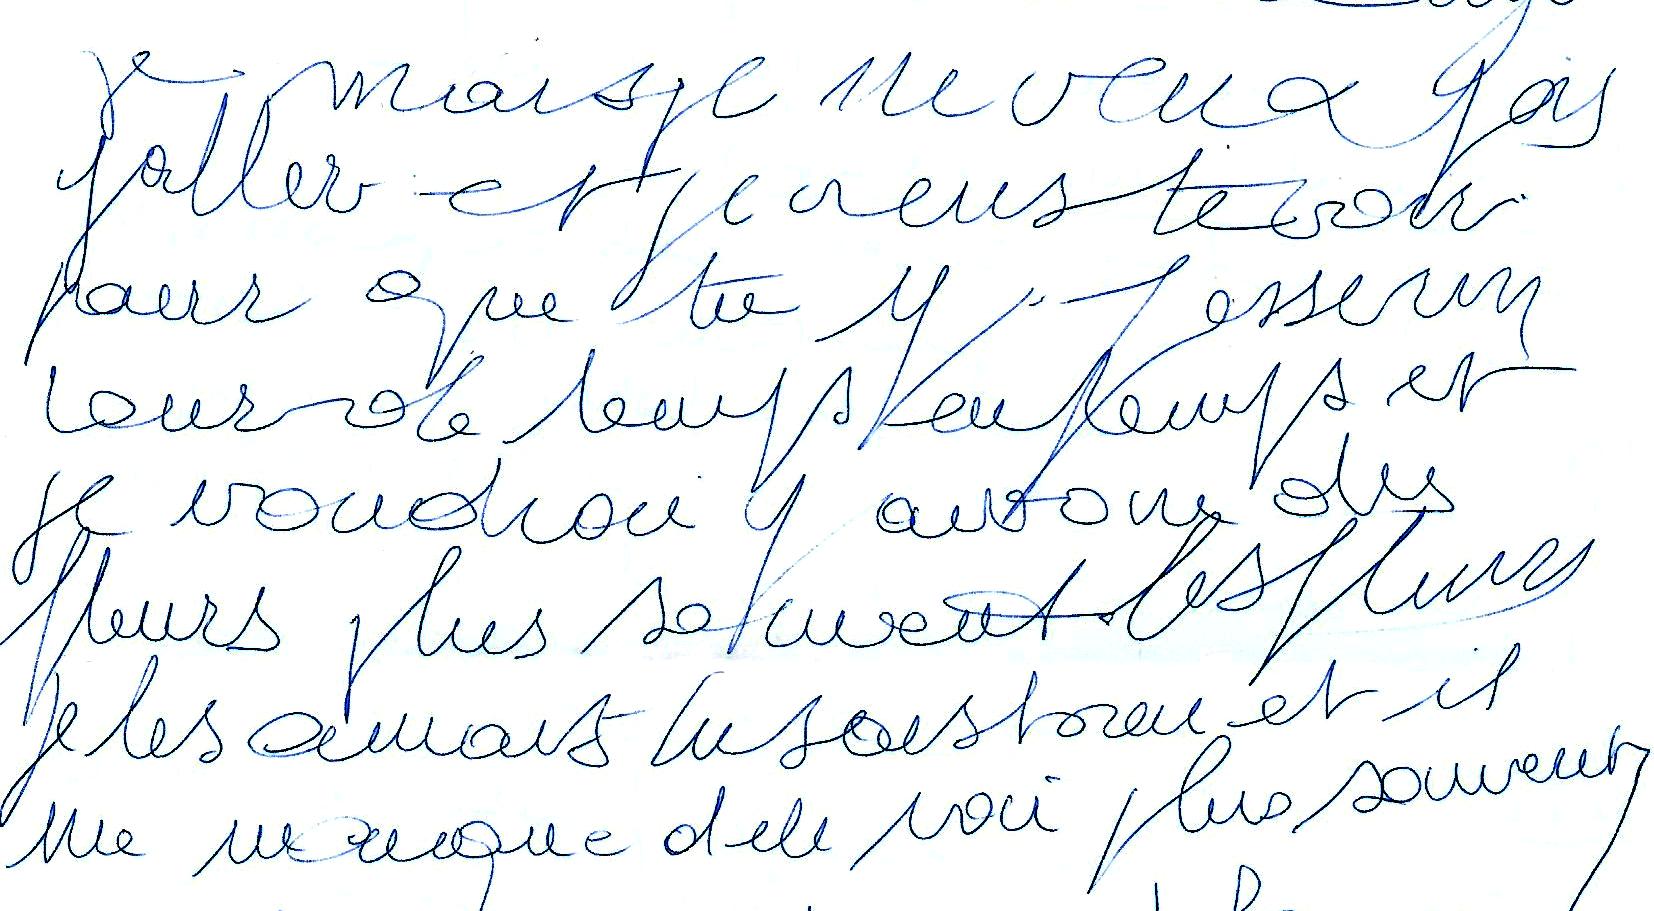 y mais je ne veux pas
y aller et je veus te voir
pour que tu y fasse un
tour de temps en temps et
je voudrai y avoir des
fleurs plus souvent les fleurs
je les aimais tu sais bien et il
me manque de le voir plus souvent